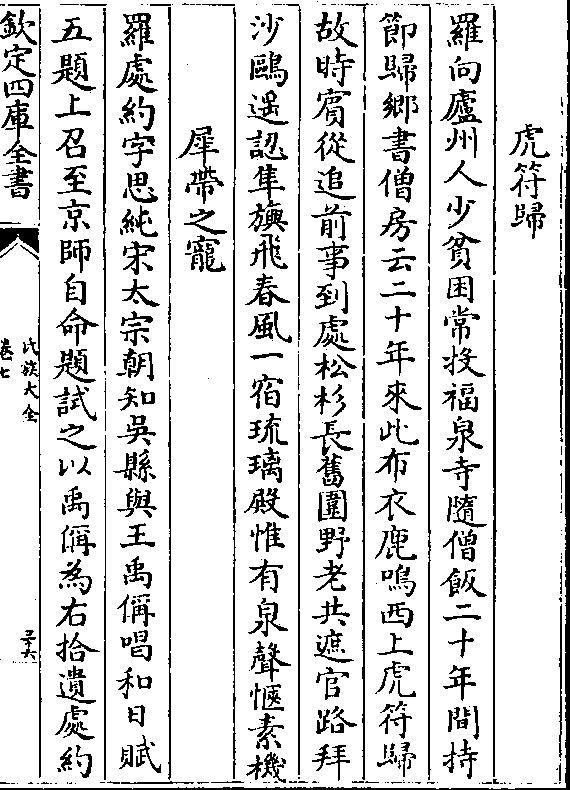 虎符歸
羅向廬州人少貧困常投福泉寺隨僧飯二十年間持
節歸鄉書僧房云二十年來此布衣鹿鳴西上虎符歸
故時賓從追前事到處松杉長舊圍野老共遮官路拜
沙鷗遥認隼旟飛春風一宿琉璃殿惟有泉聲愜素機
犀帶之寵
羅處約字思純宋太宗朝知吳縣與王禹偁唱和日賦
五題上召至京師自命題試之以禹偁為右拾遺處約
欽定四庫全書
氏族大全
卷七
三十六